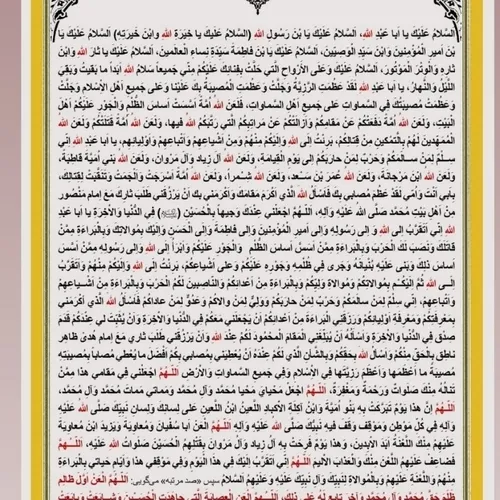 اَلسَّلامُ عَلَيْكَ يا اَبا عَبْدِ اللهِ، اَلسَّلامُ عَلَيْكَ يَا بْنَ رَسُولِ اللهِ (السَّلامُ عَلَيْكَ يا خِيَرَةَ اللهِ وَابْنَ خِيَرَتِهِ) اَلسَّلامُ عَلَيْكَ يَا
بْنَ اَميرِ الْمُؤْمِنينَ وَابْنَ سَيِّدِ الْوَصِيّينَ، اَلسَّلامُ عَلَيْكَ يَا بْنَ فاطِمَةَ سَيِّدَةِ نِساءِ الْعالَمينَ، اَلسَّلامُ عَلَيْكَ يا ثارَ اللهِ وَابْنَ
ثارِهِ وَالْوِتْرَ الْمَوْتُورَ، اَلسَّلامُ عَلَيْكَ وَعَلَى الْاَرْواحِ الَّتي حَلَّتْ بِفِنائِكَ عَلَيْكُمْ مِنّي جَميعاً سَلامُ اللهِ اَبَداً ما بَقيتُ وَبَقِيَ
اللَّيْلُ وَالنَّهارُ، يا اَبا عَبْدِ اللهِ لَقَدْ عَظُمَتِ الرَّزِيَّةُ وَجَلَّتْ وَعَظُمَتِ الْمُصيبَةُ بِكَ عَلَيْنا وَعَلى جَميعِ اَهْلِ الْاِسْلامِ وَجَلَّتْ
وَعَظُمَتْ مُصيبَتُكَ فِي السَّماواتِ عَلى جَميعِ اَهْلِ السَّماواتِ، فَلَعَنَ اللهُ اُمَّةً اَسَّسَتْ اَساسَ الظُّلْمِ وَالْجَوْرِ عَلَيْكُمْ اَهْلَ
الْبَيْتِ، وَلَعَنَ اللهُ اُمَّةً دَفَعَتْكُمْ عَنْ مَقامِكُمْ وَاَزالَتْكُمْ عَنْ مَراتِبِكُمُ الَّتي رَتَّبَكُمُ اللهُ فيها، وَلَعَنَ اللهُ اُمَّةً قَتَلَتْكُمْ وَلَعَنَ اللهُ
الْمُمَهِّدينَ لَهُمْ بِالتَّمْكينِ مِنْ قِتالِكُمْ، بَرِئْتُ اِلَى اللهِ وَاِلَيْكُمْ مِنْهُمْ وَمِنْ اَشْياعِهِمْ وَاَتْباعِهِمْ وَاَوْلِيائِهِم، يا اَبا عَبْدِ اللهِ اِنّي
سِلْمٌ لِمَنْ سالَمَكُمْ وَحَرْبٌ لِمَنْ حارَبَكُمْ اِلى يَوْمِ الْقِيامَةِ، وَلَعَنَ اللهُ آلَ زِيادٍ وَآلَ مَرْوانَ، وَلَعَنَ اللهُ بَني اُمَيَّةَ قاطِبَةً،
وَلَعَنَ اللهُ ابْنَ مَرْجانَةَ، وَلَعَنَ اللهُ عُمَرَ بْنَ سَعْدٍ، وَلَعَنَ اللهُ شِمْراً، وَلَعَنَ اللهُ اُمَّةً اَسْرَجَتْ وَاَلْجَمَتْ وَتَنَقَّبَتْ لِقِتالِكَ،
بِاَبي اَنْتَ وَاُمّي لَقَدْ عَظُمَ مُصابي بِكَ فَاَسْأَلُ اللهَ الَّذي اَكْرَمَ مَقامَكَ وَاَكْرَمَني بِكَ اَنْ يَرْزُقَني طَلَبَ ثارِكَ مَعَ اِمامٍ مَنْصُورٍ
مِنْ اَهْلِ بَيْتِ مُحَمَّدٍ صَلَّى اللهُ عَلَيْهِ وَآلِهِ، اَللّهُمَّ اجْعَلْني عِنْدَكَ وَجيهاً بِالْحُسَيْنِ فِي الدُّنْيا وَالْآخِرَةِ يا اَبا عَبْدِ
اللهِ اِنّي اَتَقَرَّبُ اِلَى اللهِ وَ اِلى رَسُولِهِ وَاِلى اَميرِ الْمُؤْمِنينَ وَاِلى فاطِمَةَ وَاِلَى الْحَسَنِ وَاِلَيْكَ بِمُوالاتِكَ وَبِالْبَراءَةِ مِمَّنْ
قاتَلَكَ وَنَصَبَ لَكَ الْحَرْبَ وَبِالْبَراءَةِ مِمَّنْ اَسَّسَ اَساسَ الظُّلْمِ وَالْجَوْرِ عَلَيْكُمْ وَاَبْرَأُ اِلَى اللهِ وَاِلى رَسُولِهِ مِمَّنْ اَسَّسَ
اَساسَ ذلِكَ وَبَنى عَلَيْهِ بُنْيانَهُ وَجَرى في ظُلْمِهِ وَجَوْرِهِ عَلَيْكُمْ وَعَلى اَشْياعِكُمْ، بَرِئْتُ اِلَى اللهِ وَاِلَيْكُمْ مِنْهُمْ وَاَتَقَرَّبُ
اِلَى اللهِ ثُمَّ اِلَيْكُمْ بِمُوالاتِكُمْ وَمُوالاةِ وَلِيِّكُمْ وَبِالْبَراءَةِ مِنْ اَعْدائِكُمْ وَالنّاصِبينَ لَكُمُ الْحَرْبَ وَبِالْبَراءَةِ مِنْ اَشْياعِهِمْ
وَاَتْباعِهِمْ، اِنّي سِلْمٌ لِمَنْ سالَمَكُمْ وَحَرْبٌ لِمَنْ حارَبَكُمْ وَوَلِيٌّ لِمَنْ والاكُمْ وَعَدُوٌّ لِمَنْ عاداكُمْ فَاَسْأَلُ اللهَ الَّذي اَكْرَمَني
بِمَعْرِفَتِكُمْ وَمَعْرِفَةِ اَوْلِيائِكُمْ وَرَزَقَنِي الْبَراءَةَ مِنْ اَعْدائِكُمْ اَنْ يَجْعَلَني مَعَكُمْ فِي الدُّنْيا وَالْآخِرَةِ وَاَنْ يُثَبِّتَ لي عِنْدَكُمْ قَدَمَ
صِدْقٍ فِي الدُّنْيا وَالْآخِرَةِ وَاَسْأَلُهُ اَنْ يُبَلِّغَنِي الْمَقامَ الْمَحْمُودَ لَكُمْ عِنْدَ اللهِ وَاَنْ يَرْزُقَني طَلَبَ ثاري مَعَ اِمامٍ هُدىً ظاهِرٍ
ناطِقٍ بِالْحَقِّ مِنْكُمْ وَاَسْأَلُ اللهَ بِحَقِّكُمْ وَبِالشَّأْنِ الَّذي لَكُمْ عِنْدَهُ اَنْ يُعْطِيَني بِمُصابي بِكُمْ اَفْضَلَ ما يُعْطي مُصاباً بِمُصيبَتِهِ
مُصيبَةً ما اَعْظَمَها وَاَعْظَمَ رَزِيَّتَها فِي الْاِسْلامِ وَفي جَميعِ السَّماواتِ وَالْاَرْضِ اَللّهُمَّ اجْعَلْني في مَقامي هذا مِمَّنْ
تَنالُهُ مِنْكَ صَلَواتٌ وَرَحْمَةٌ وَمَغْفِرَةٌ، اَللّهُمَّ اجْعَلْ مَحْيايَ مَحْيا مُحَمَّدٍ وَآلِ مُحَمَّدٍ وَمَماتي مَماتَ مُحَمَّدٍ وَآلِ مُحَمَّدٍ،
اَللّهُمَّ اِنَّ هذا يَوْمٌ تَبَرَّكَتْ بِهِ بَنُو اُمَيَّةَ وَابْنُ آكِلَةِ الْاَكبادِ اللَّعينُ ابْنُ اللَّعينِ عَلى لِسانِكَ وَلِسانِ نَبِيِّكَ صَلَّى اللهُ عَلَيْهِ
وَآلِهِ في كُلِّ مَوْطِنٍ وَمَوْقِفٍ وَقَفَ فيهِ نَبِيُّكَ صَلَّى اللهُ عَلَيْهِ وَآلِهِ اَللّهُمَّ الْعَنْ اَبا سُفْيانَ وَمُعاوِيَةَ وَيَزيدَ ابْنَ مُعاوِيَةَ
عَلَيْهِمْ مِنْكَ اللَّعْنَةُ اَبَدَ الْآبِدينَ، وَهذا يَوْمٌ فَرِحَتْ بِهِ آلُ زِيادٍ وَآلُ مَرْوانَ بِقَتْلِهِمُ الْحُسَيْنَ صَلَواتُ اللهِ عَلَيْهِ، اَللّهُمَّ
فَضاعِفْ عَلَيْهِمُ اللَّعْنَ مِنْكَ وَالْعَذابَ الْاَليمَ اَللّهُمَّ اِنّي اَتَقَرَّبُ اِلَيْكَ في هذَا الْيَوْمِ وَفي مَوْقِفي هذا وَاَيّامِ حَياتي بِالْبَراءَةِ
مِنْهُمْ وَاللَّعْنَةِ عَلَيْهِمْ وَبِالْمُوالاةِ لِنَبِيِّكَ وَآلِ نَبِيِّكَ عَلَيْهِ وَعَلَيْهِمُ السَّلامُ سپس «صد مرتبه» می‌گویی: اَللّهُمَّ الْعَنْ اَوَّلَ ظالِمٍ
ظَلَمَ حَقَّ مُحَمَّدٍ وَآلِ مُحَمَّدٍ وَآخِرَ تابِعٍ لَهُ عَلى ذلِكَ، اَللّهُمَّ الْعَنِ الْعِصابَةَ الَّتي جاهَدَتِ الْحُسَيْنَ وَشايَعَتْ وَبايَعَتْ